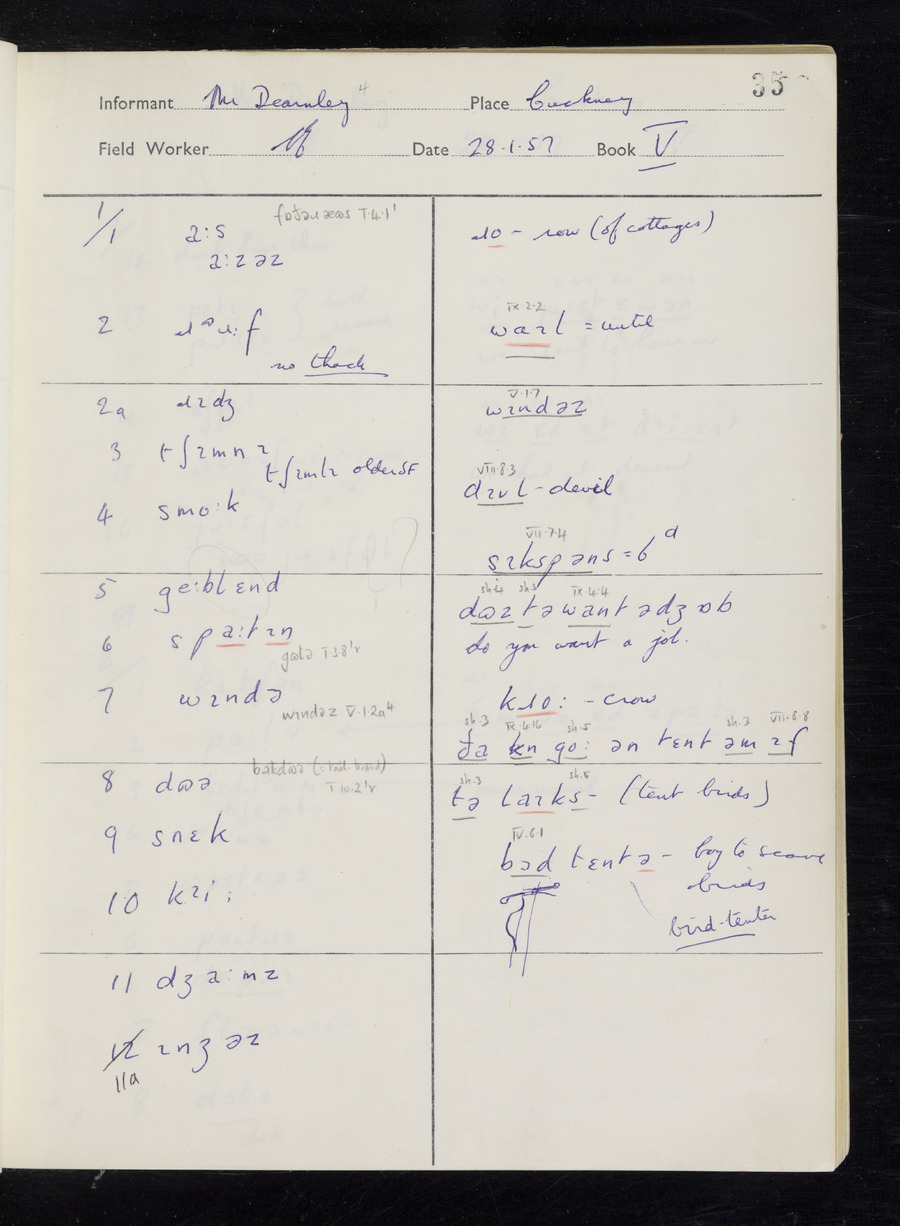 35
Informant Mr Dearnley 4 Place Cuckney
Field Worker Date 28.1.57 Book V
1/1 a:s
a:zəz
2
no thack
2a ɹɪdʒ
3 tʃɪmnɪ
tʃɪmlɪ older SF
4 smo:k
5 ge:blɛnd
6 spa:tɪn
7 wɪndə
wɪndəz V.1.2a4
8 dʊə
9 snɛk
10 kɪi:
11 dʒa:mz
12 ɪnʒəz
11a
ɹo - row (of cottages)
IX.2.2
waɪl = until
V.1.7
wɪndəz
VIII.8.3
dɪvl - devil
VII.7.4
sɪkspəns = 6d
sh.4 sh.3 IX.4.4
dʊz tə want ədʒɒb
do you want a job.
kɹo: - crow
sh.3 IX.4.16 sh.5 sh.3 VII.8.8
ða kn go: ən tɛnt əm ɪf
sh.3 sh.5
tə laɪks - (tent birds)
IV.6.1
bəd tɛntə - boy to scare
birds
bird-tenter